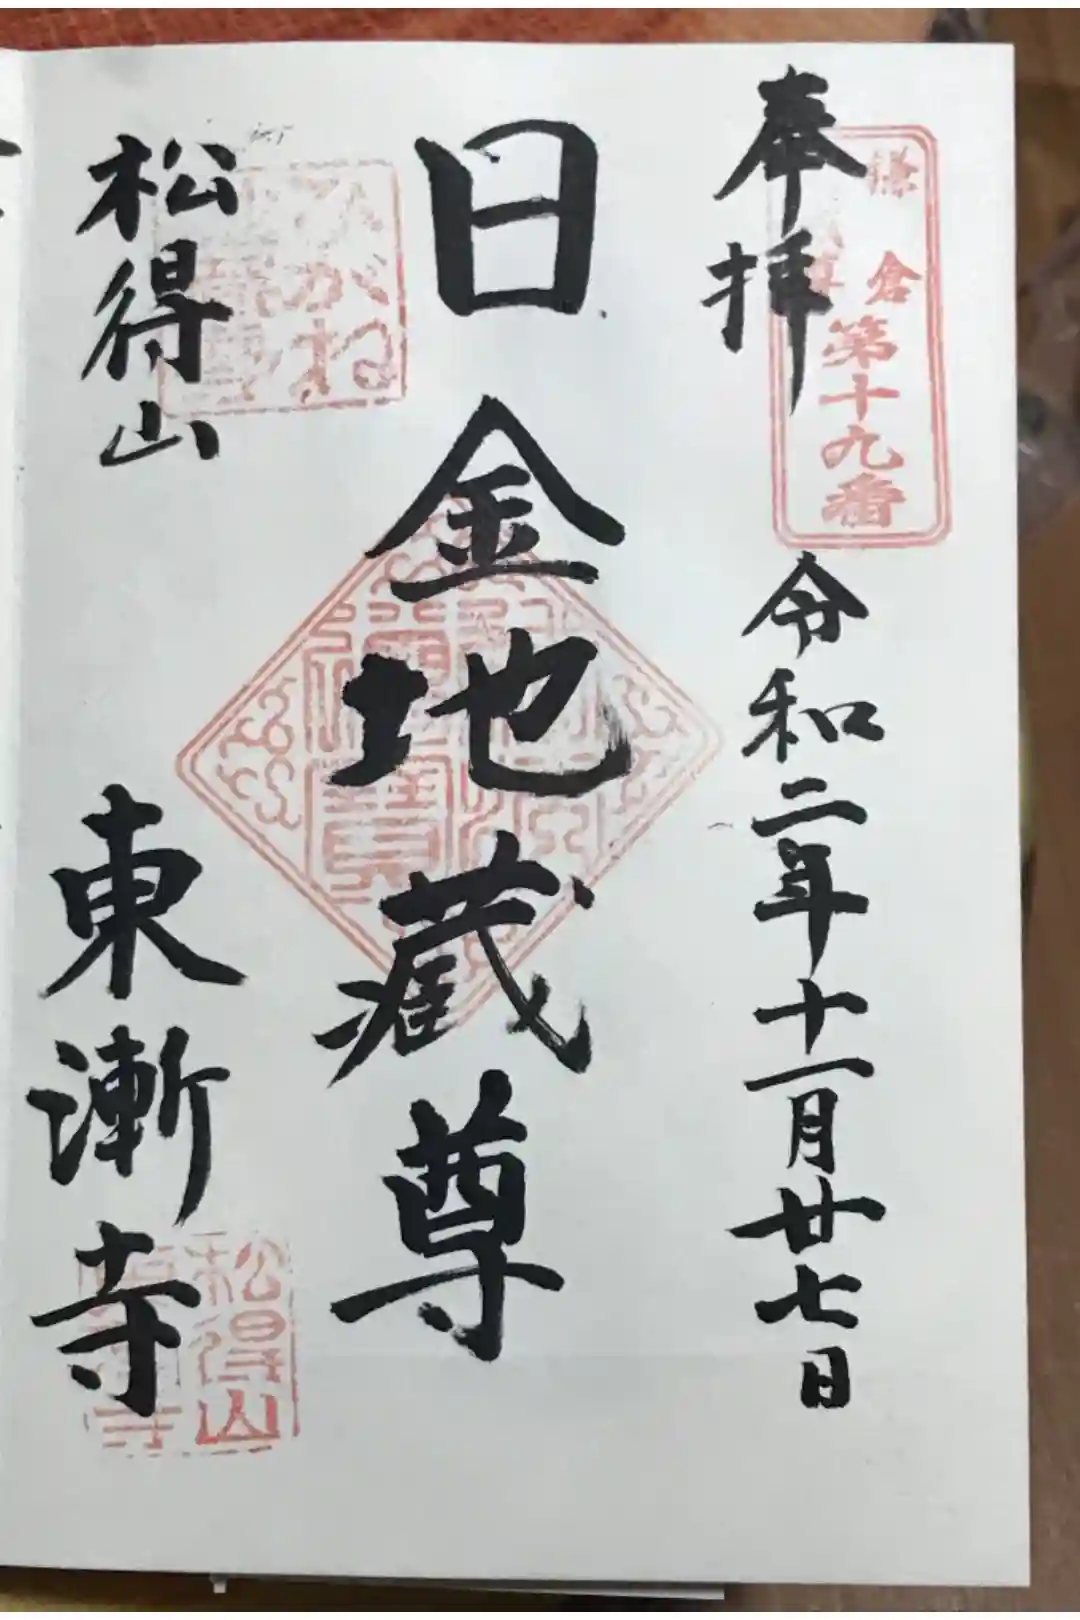 奉拝
鎌倉
第十九番
令和二年十一月廿七日
日金地蔵尊
佛法僧寶
ひがね
松得山
東漸寺
松得山